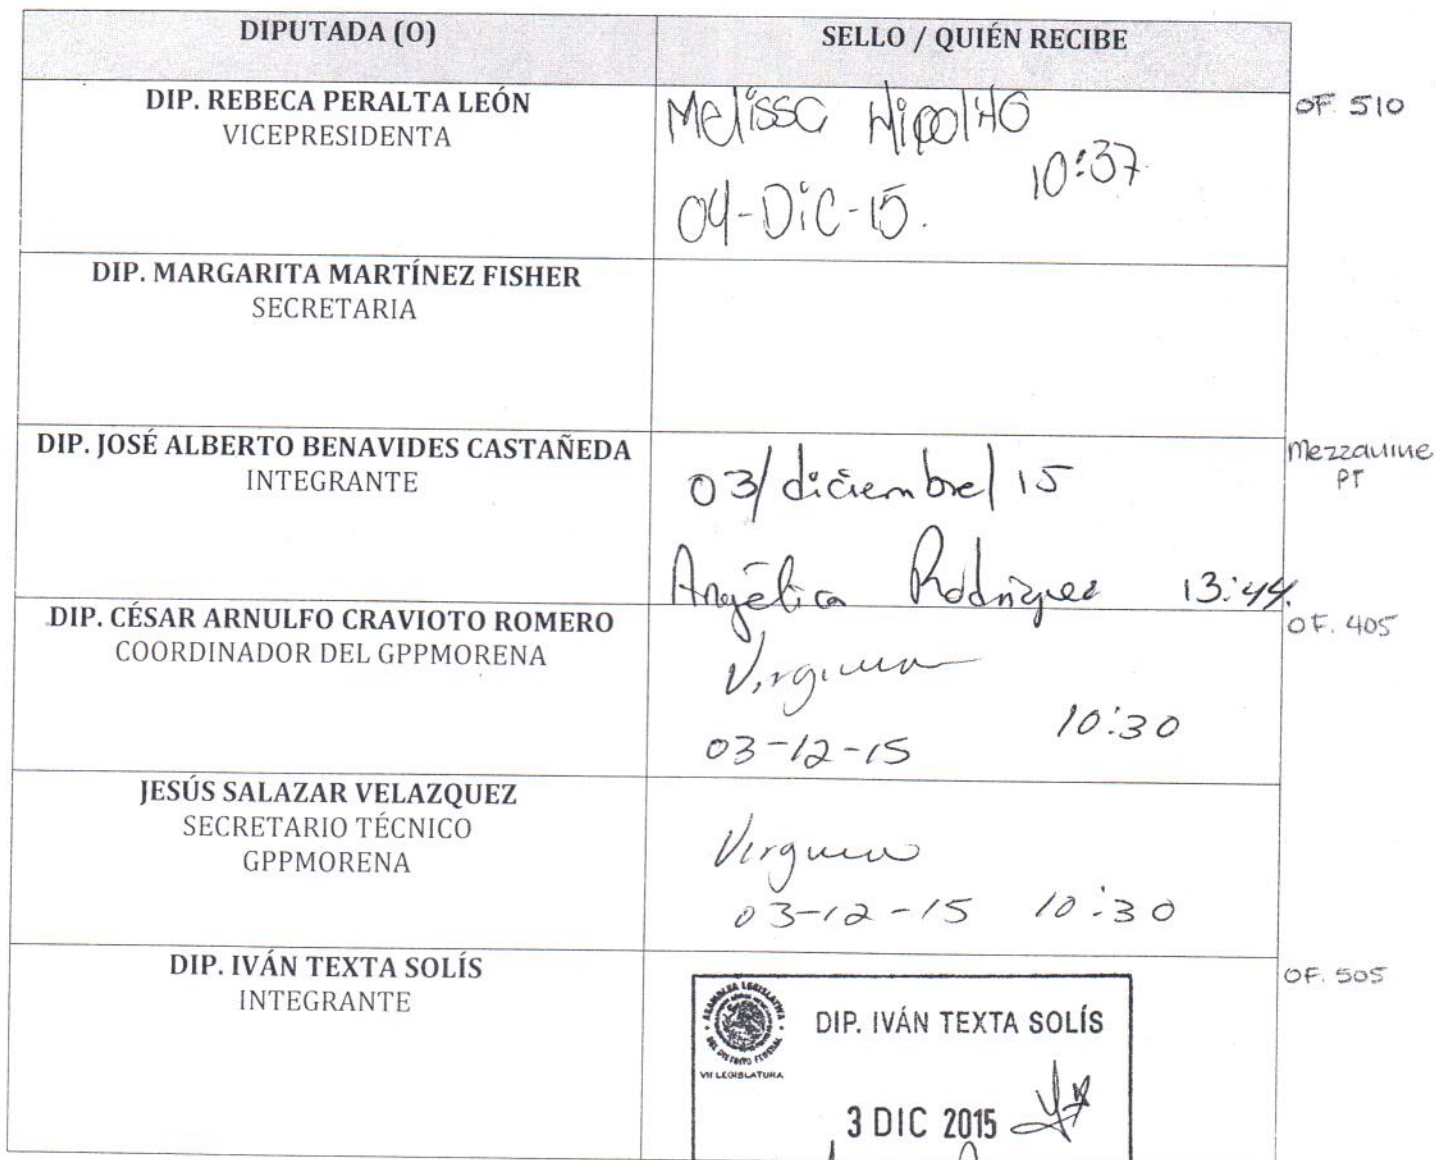 DIPUTADA (O)
SELLO / QUIÉN RECIBE
DIP. REBECA PERALTA LEÓN
VICEPRESIDENTA
Melissa Hipolito
10:37
04-Dic-15.
OF. 510
DIP. MARGARITA MARTÍNEZ FISHER
SECRETARIA
DIP. JOSÉ ALBERTO BENAVIDES CASTAÑEDA
INTEGRANTE
03/diciembre/15
Angélica Rodríguez 13:44.
Mezzanine
PT
DIP. CÉSAR ARNULFO CRAVIOTO ROMERO
COORDINADOR DEL GPPMORENA
Virginia
10:30
03-12-15
OF. 405
JESÚS SALAZAR VELAZQUEZ
SECRETARIO TÉCNICO
GPPMORENA
Virginia
03-12-15 10:30
DIP. IVÁN TEXTA SOLÍS
INTEGRANTE
ASAMBLEA LEGISLATIVA
DEL DISTRITO FEDERAL
VII LEGISLATURA
DIP. IVÁN TEXTA SOLÍS
3 DIC 2015
OF. 505